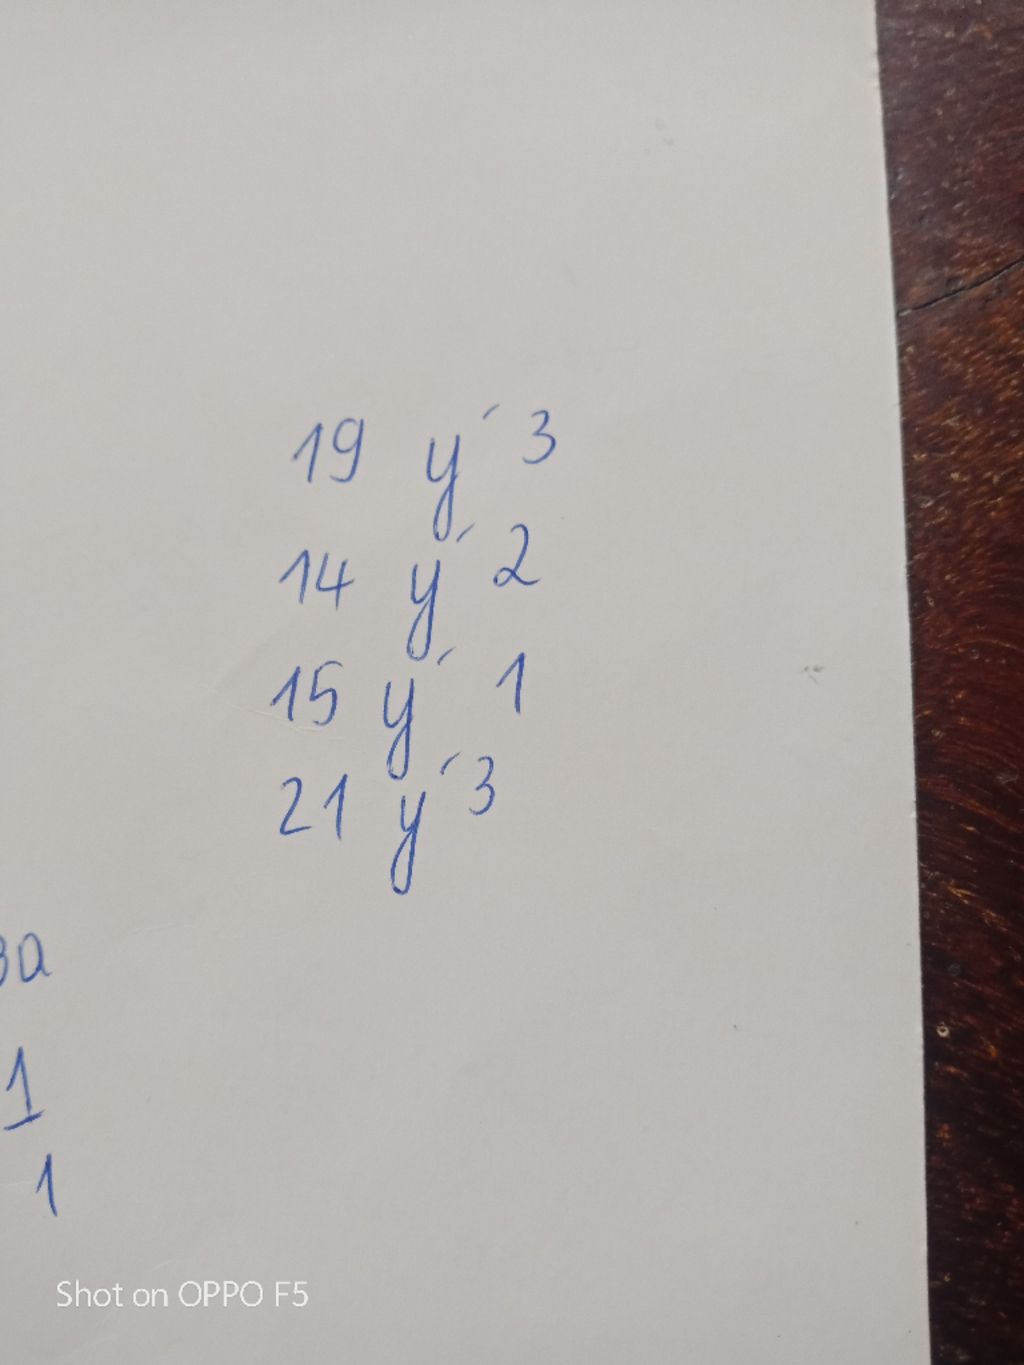 19 у´ 3
14 у´ 2
15 у´ 1
21 у´ 3
за
1
1
Shot on OPPO F5